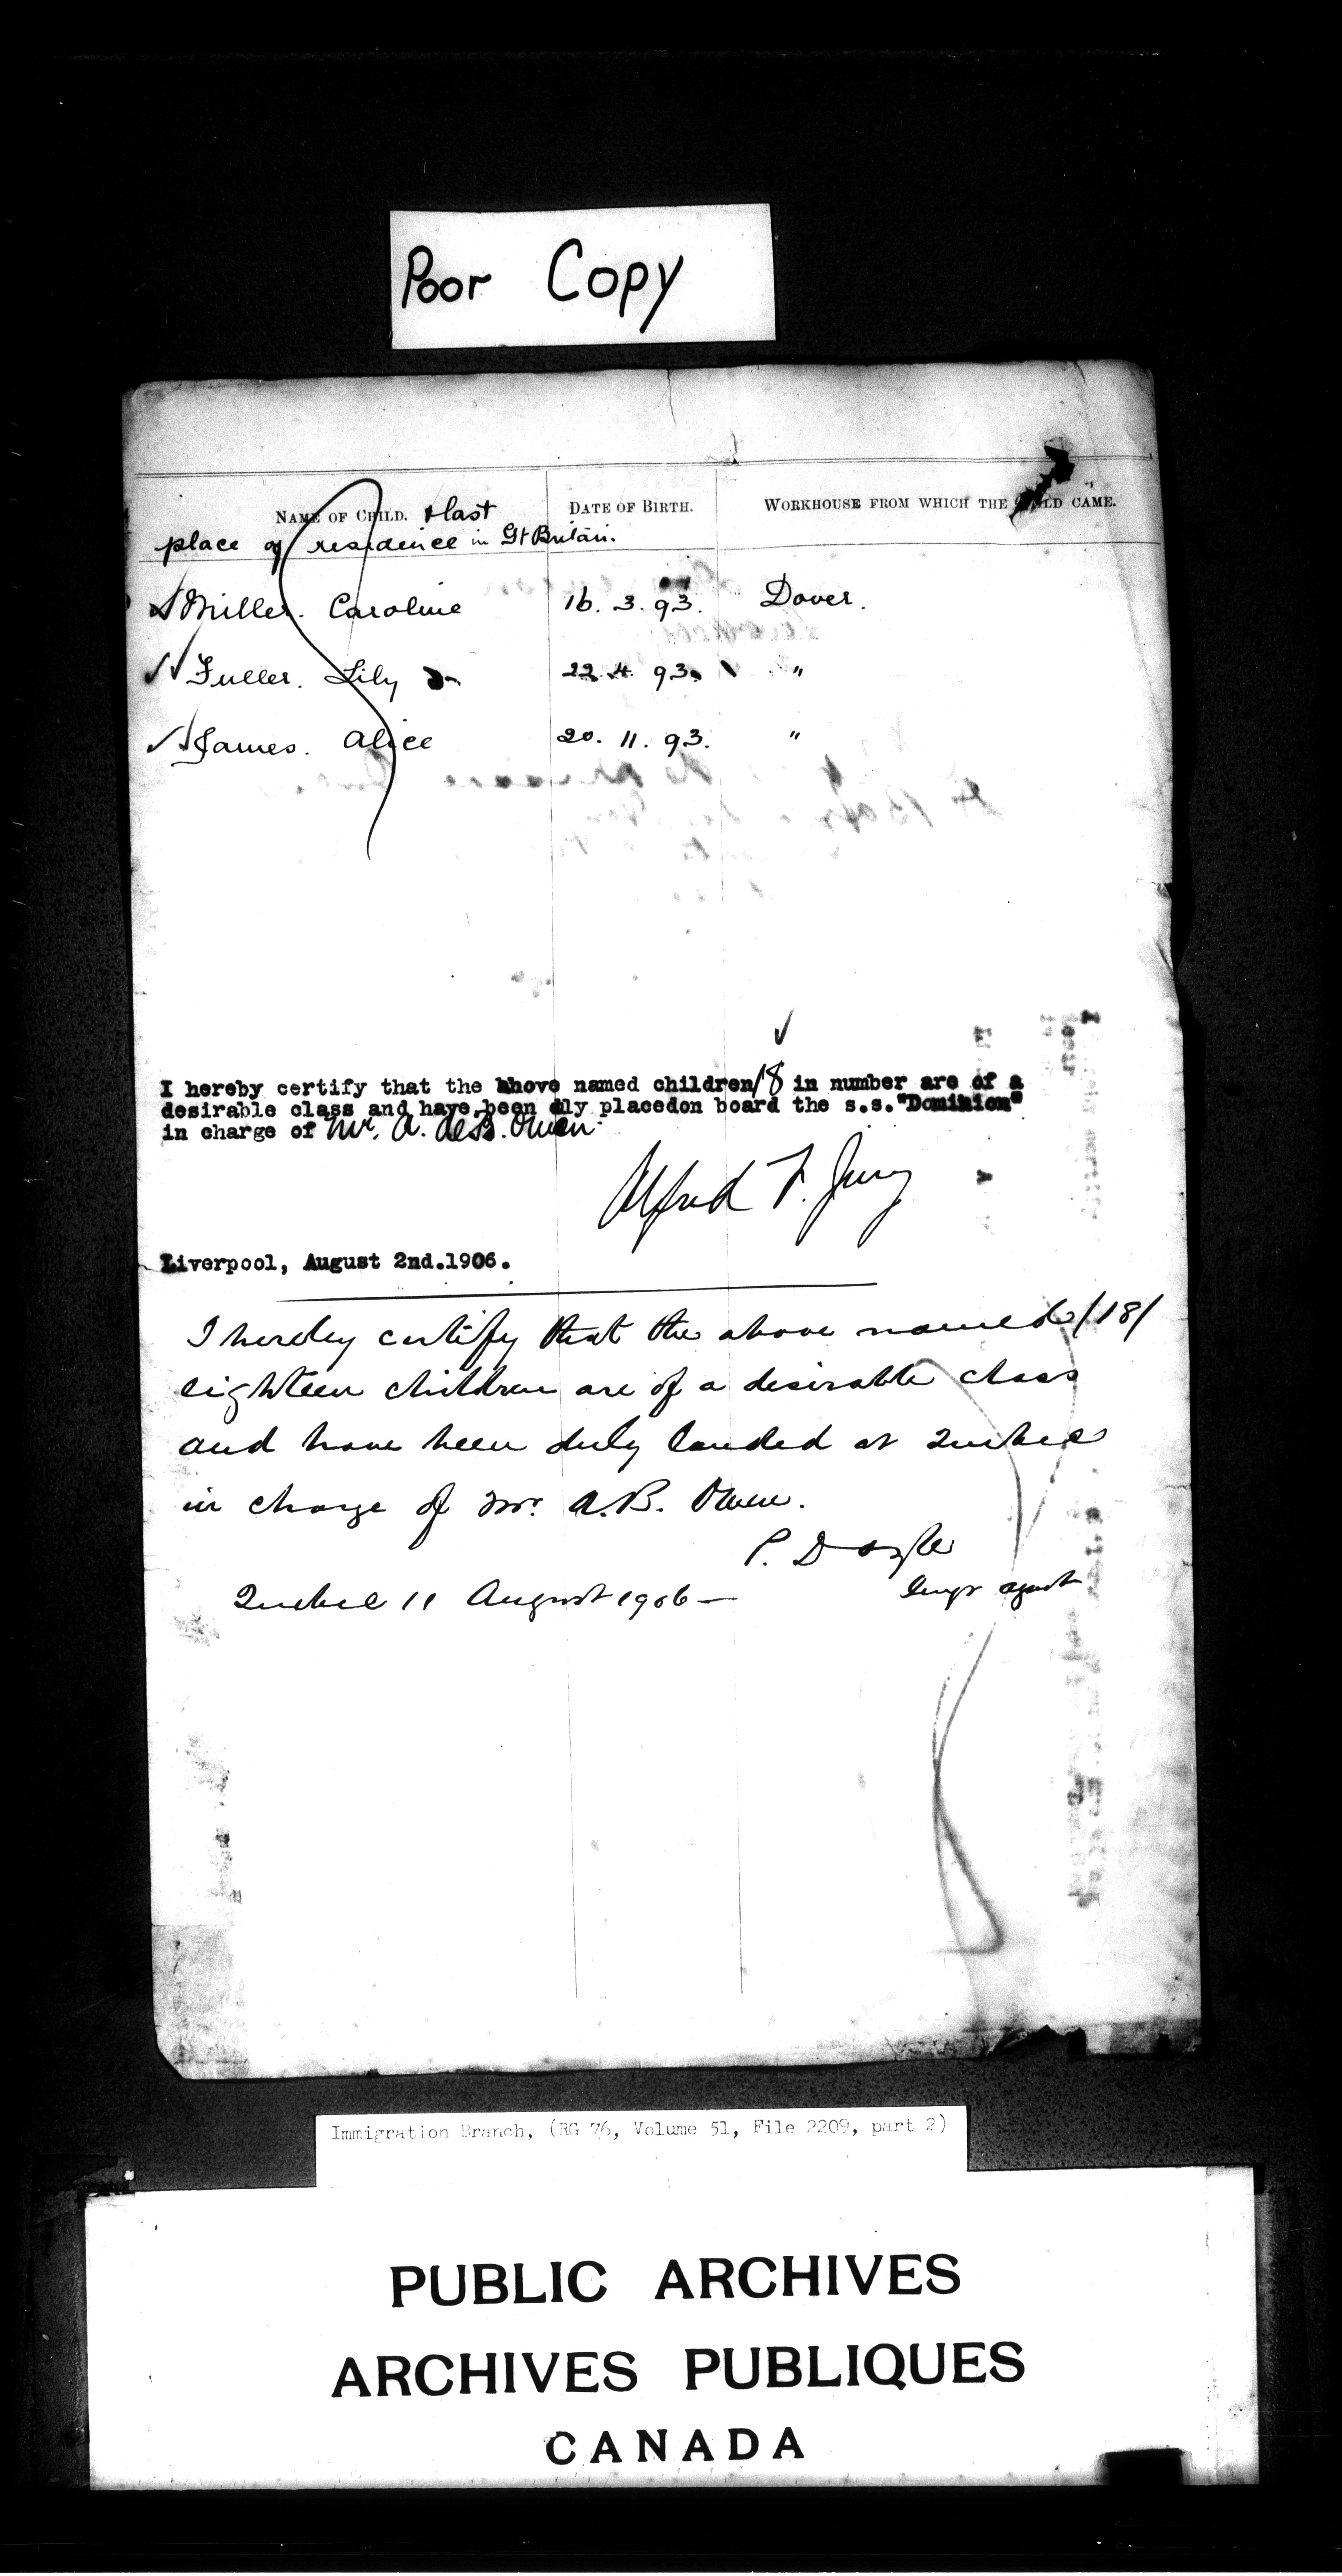 Poor Copy
NAME OF CHILD. & last
place of residence in Gt Britain.
DATE OF BIRTH.
WORKHOUSE FROM WHICH THE CHILD CAME.
Miller. Caroline 16. 3. 93. Dover.
Fuller. Lily 22. 4. 93. "
James. Alice 20. 11. 93. "
I hereby certify that the above named children 18 in number are of a
desirable class and have been dly placedon board the s.s."Dominion"
in charge of Mr. A. deB. Owen.
Alfred F. Jury
Liverpool, August 2nd.1906.
I hereby certify that the above named /18/
eighteen children are of a desirable class
and have been duly landed at Quebec
in charge of Mr. A.B. Owen.
P. Doyle
Imgr agent
Quebec 11 August 1906—
Immigration Branch, (RG 76, Volume 51, File 2209, part 2)
PUBLIC ARCHIVES
ARCHIVES PUBLIQUES
CANADA